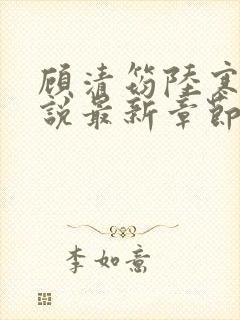 顾清笏陆寒
说最新章节
李如意